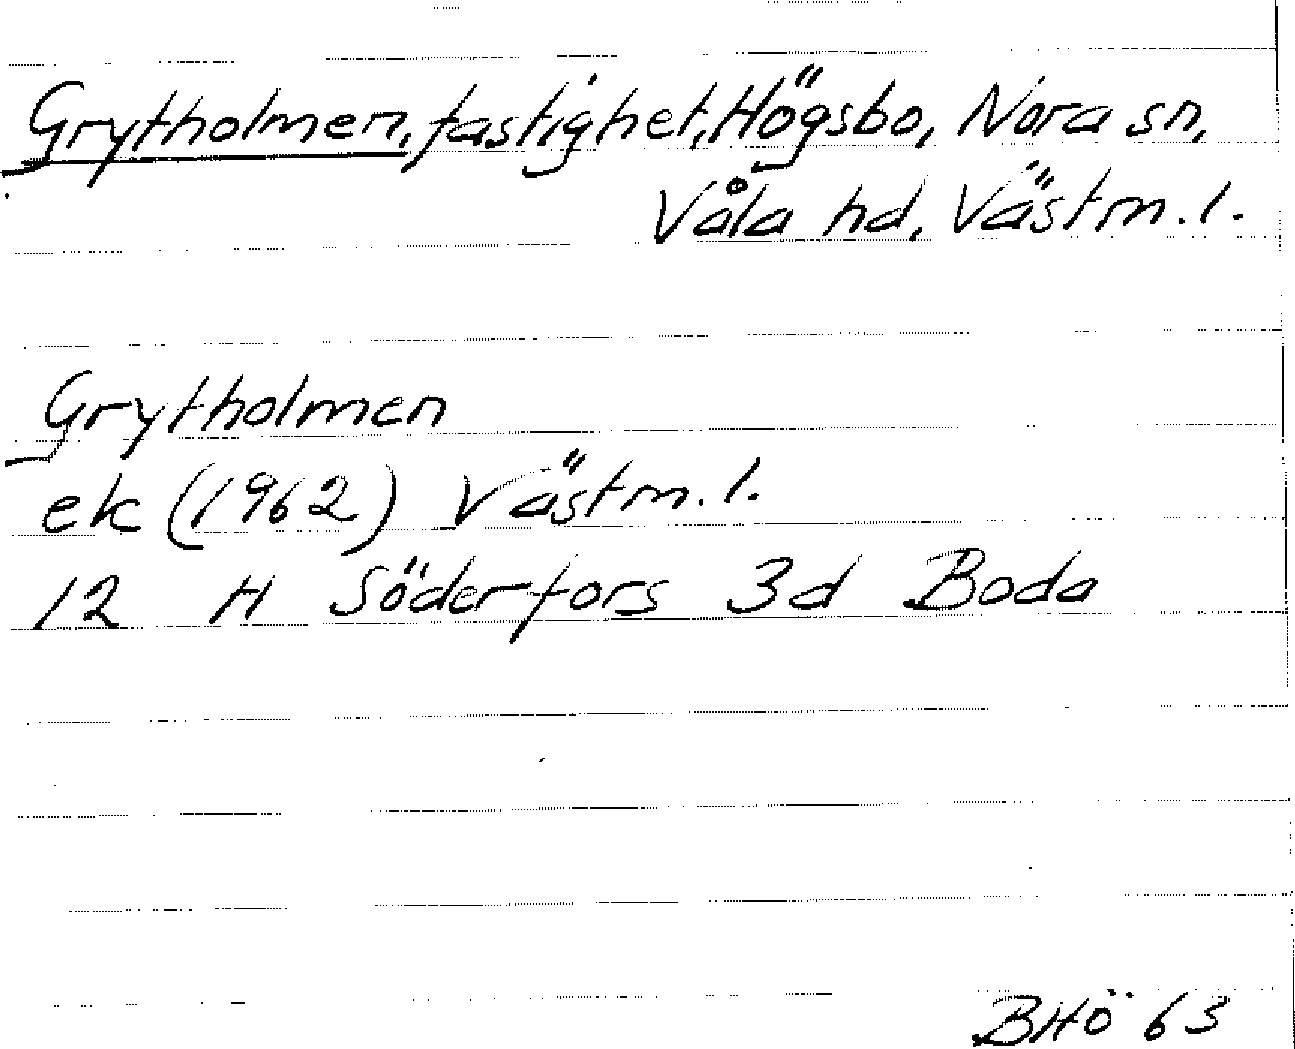 Grytholmen, fastighet, Högsbo, Nora sn,
Våla hd, Västm. l.
Grytholmen
ek (1962) Västm. l.
12 H Söderfors 3d Boda
BHÖ 63